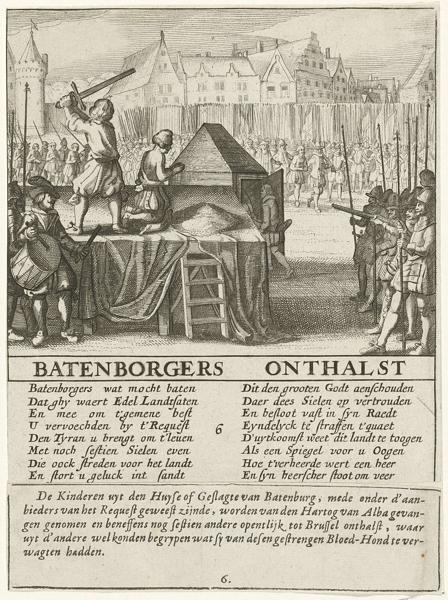 BATENBORGERS ONTHALST
Batenborgers wat mocht baten
Dat ghy waert Edel Landtsaten
En mee om t'gemene best
U vervoechden by t'Request
Den Tyran u brengt om t'leven
Met noch sestien Sielen even
Die oock streden voor het landt
En stort u geluck int sandt
6
Dit den grooten Godt aenschouden
Daer dees Sielen op vertrouden
En besloot vast in syn Raedt
Eyndelyck te straffen t'quaet
D'uytkoomst weet dit landt te toogen
Als een Spiegel voor u Oogen
Hoe t'verheerde wert een heer
En syn heerscher stoot om veer
De Kinderen uyt den Huyse of Geslagte van Batenburg, mede onder d'aan-
bieders van het Request geweest zijnde, worden van den Hartog van Alba gevan-
gen genomen en beneffens nog sestien andere opentlijk tot Brussel onthalst, waar
uyt d'andere wel konden begrypen wat sy van desen gestrengen Bloed-Hond te ver-
wagten hadden.
6.